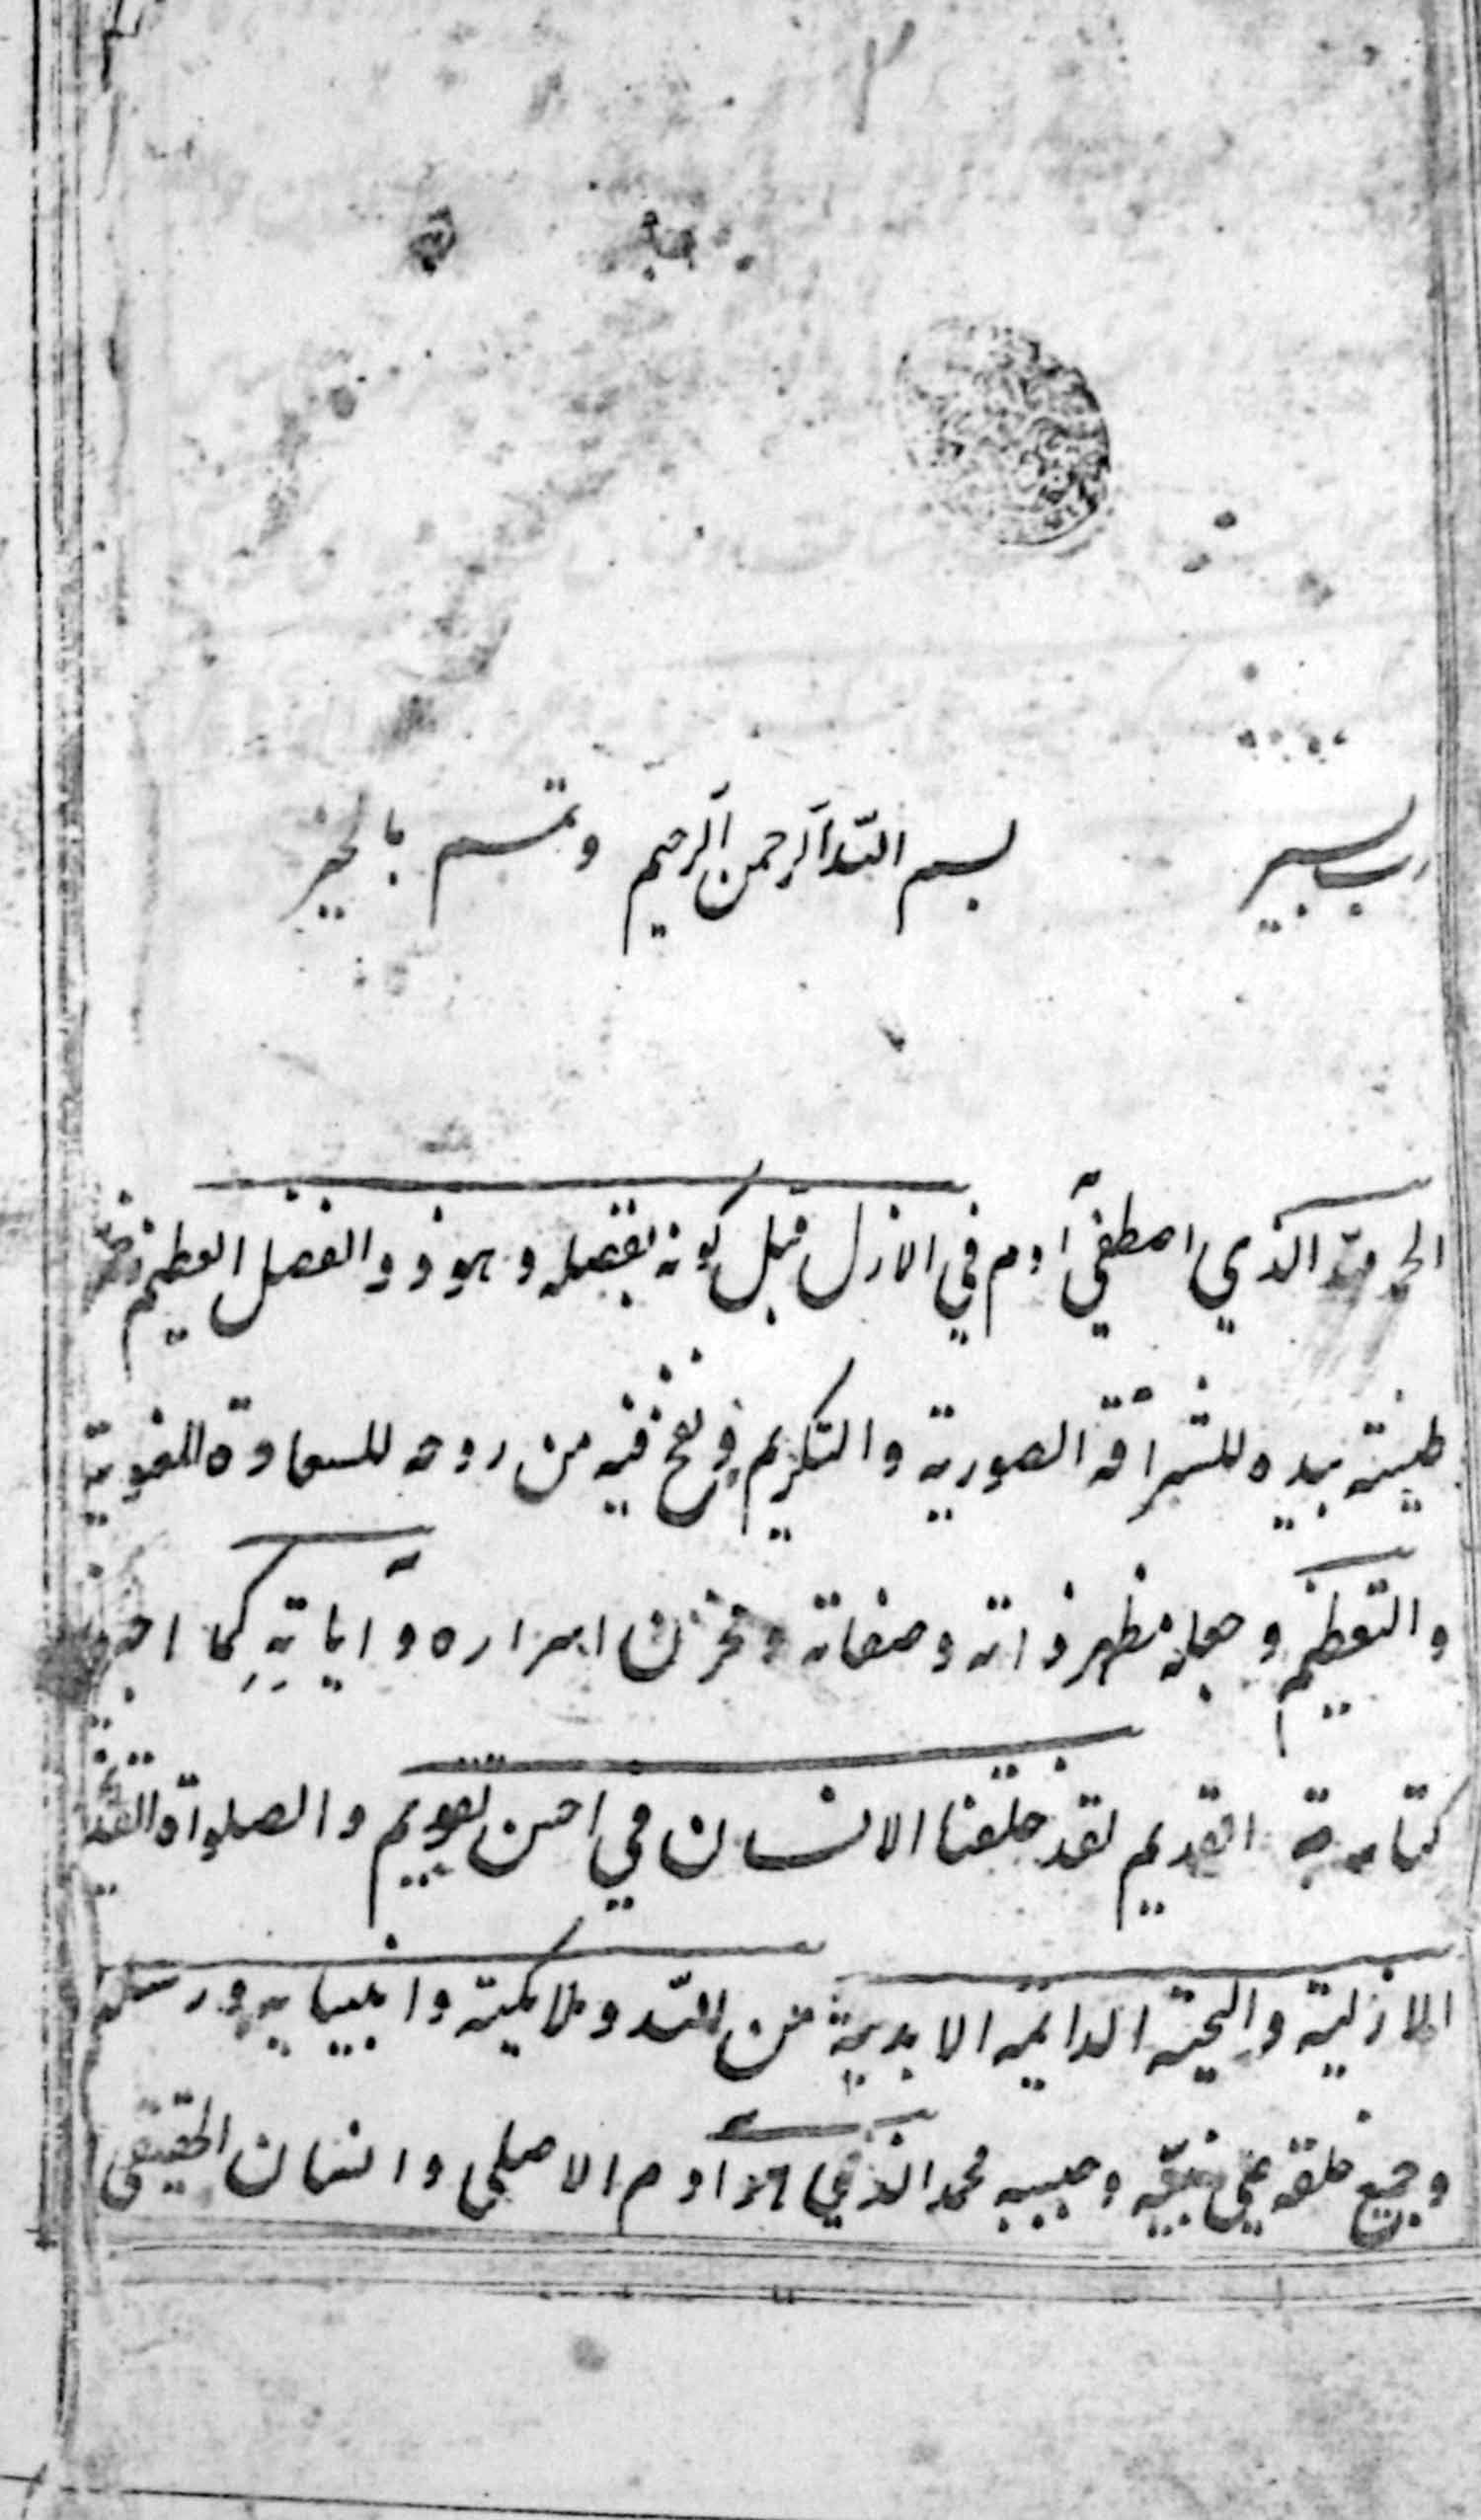 رب يسر بسم الله الرحمن الرحيم وتمم بالخير
الحمد لله الذي اصطفي آدم في الازل قبل كونه بفضله وهو ذو الفضل العظيم وخمر
طينته بيده للشرافة الصورية والتكريم ونفخ فيه من روحه للسعادة المعنوية
والتعظيم وجعله مظهر ذاته وصفاته ومخزن اسراره وآياته كما اخبر
كتابه القديم لقد خلقنا الانسان في احسن تقويم والصلواة
الازلية والتحية الدايمه الابدية من الله وملايكته وانبيايه ورسله
وجميع خلقه علي نبيّه وحبيبه محمد الذي هو آدم الاصلي وانسان الحقيقي